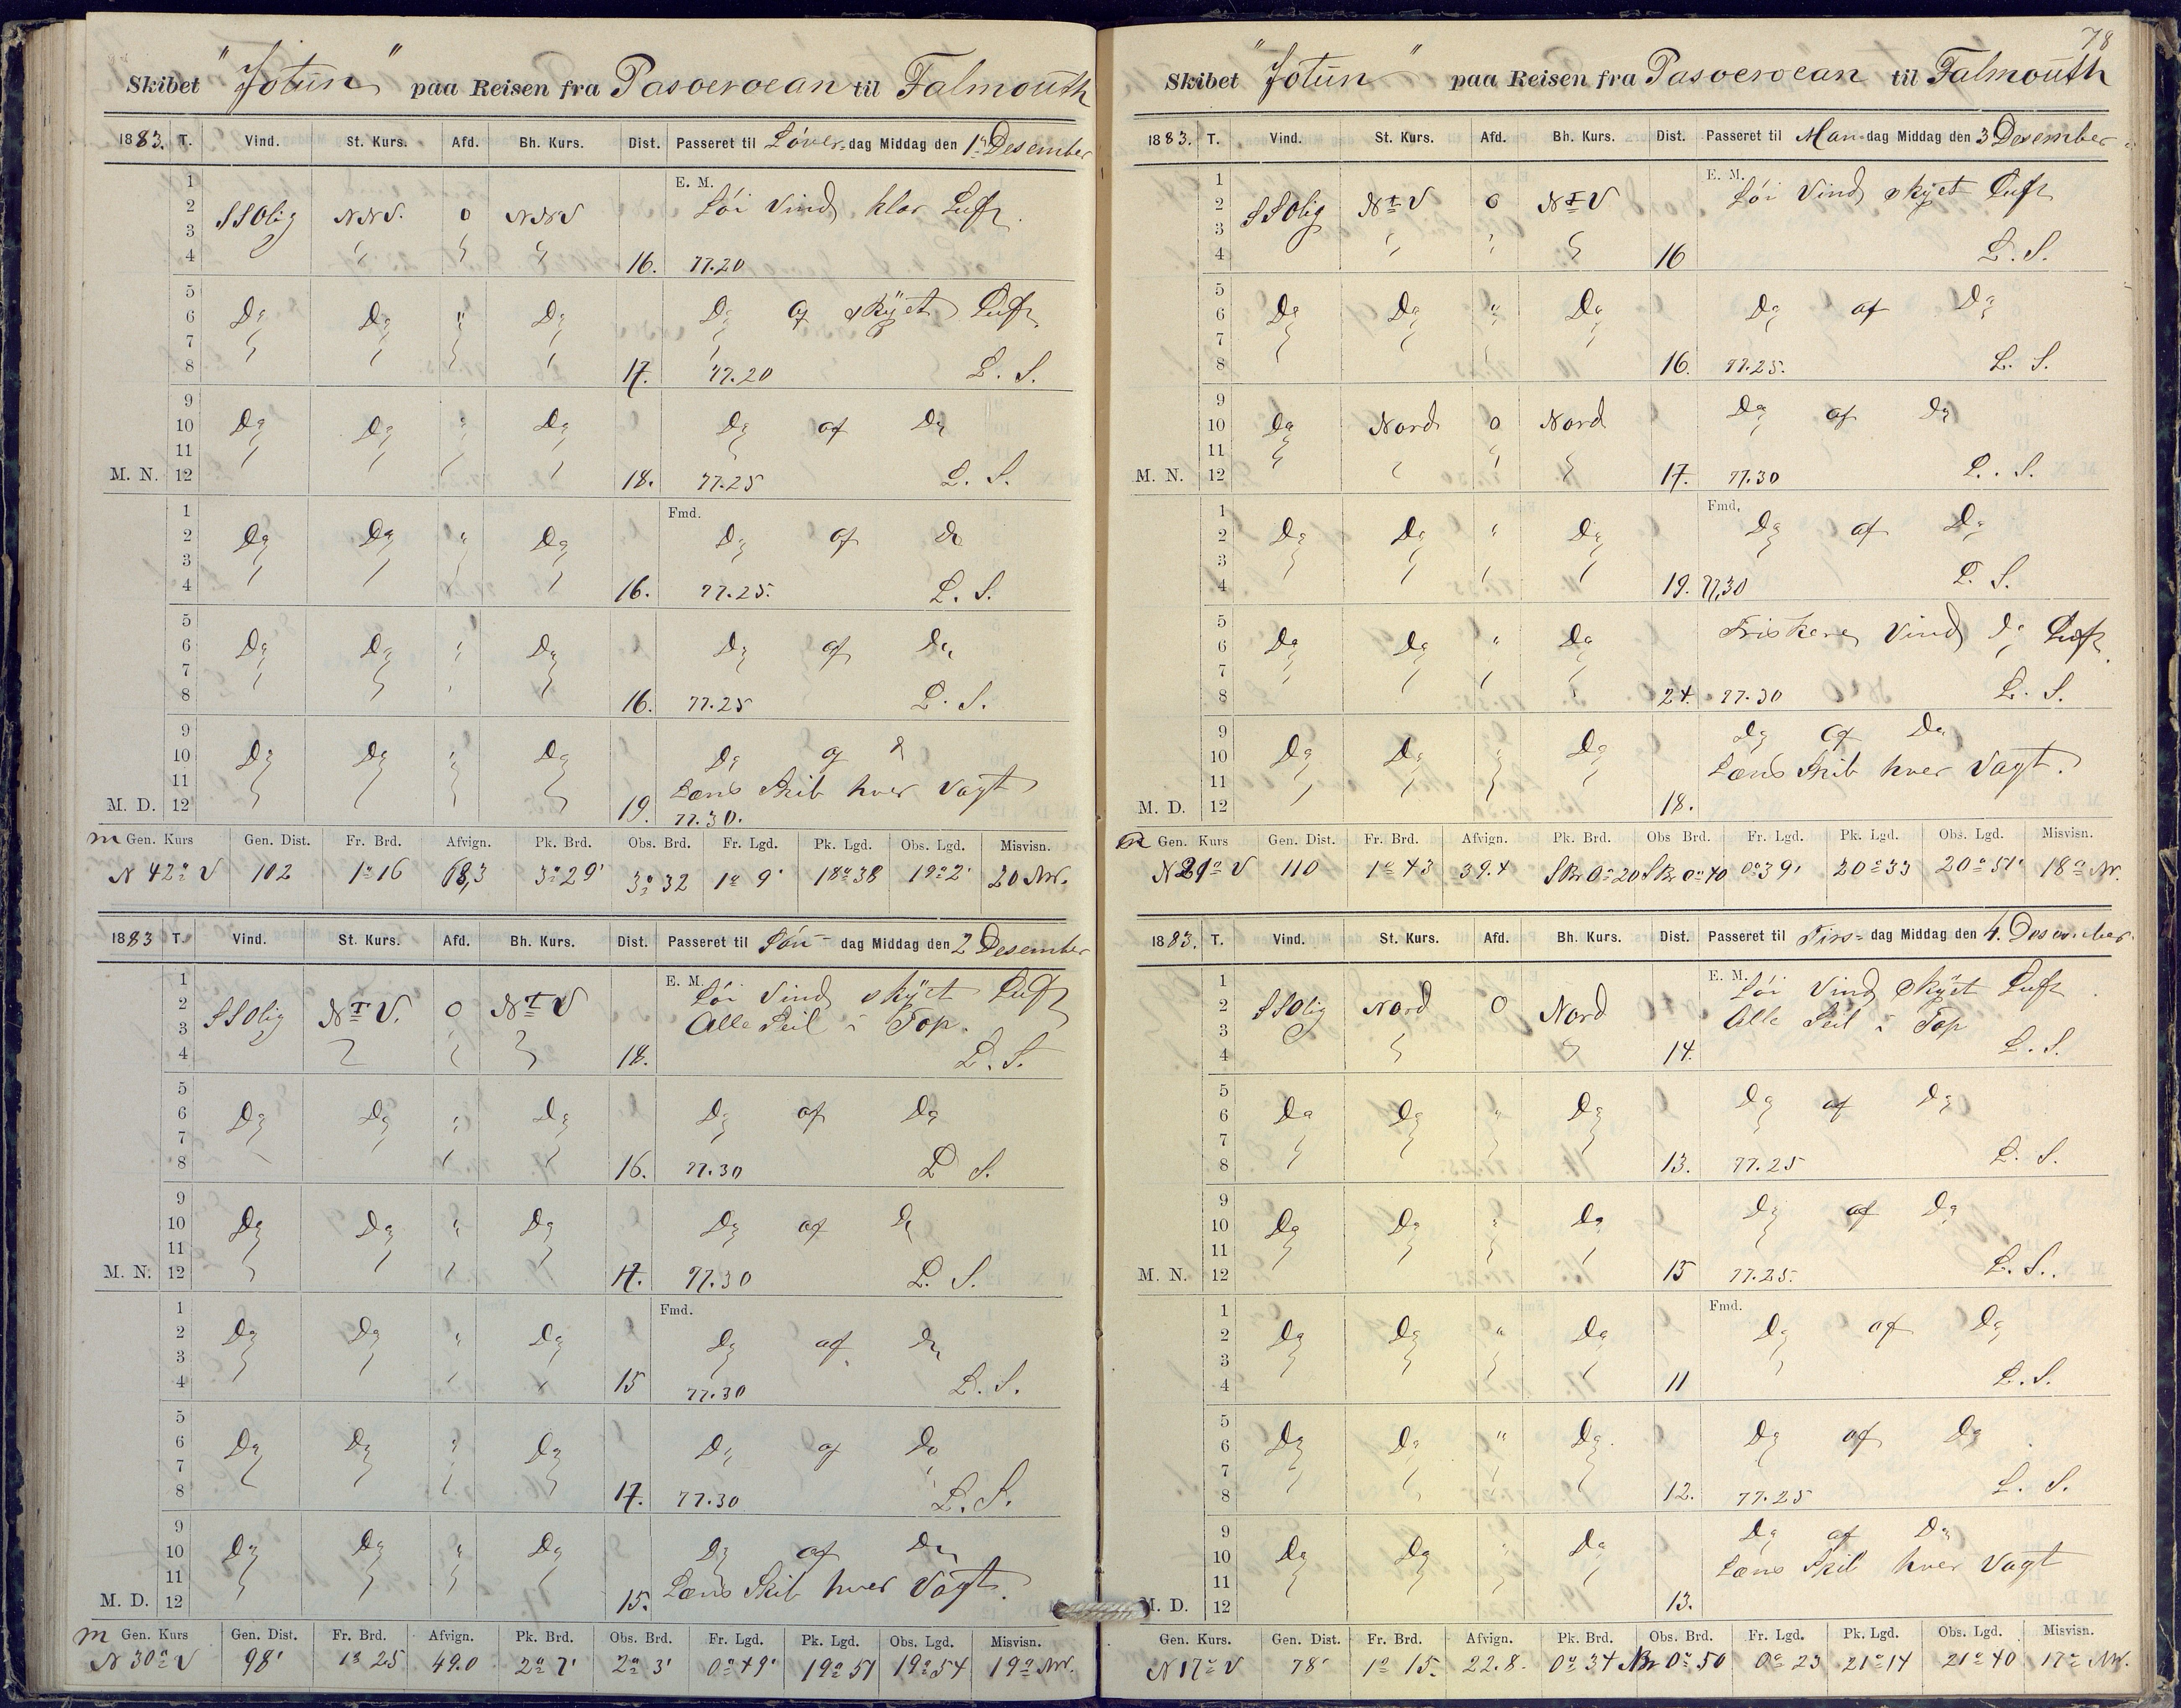 Skibet "Jotun" paa Reisen fra Pasoeroean til Falmouth
1883. T. Vind. St. Kurs. Afd. Bh. Kurs. Dist. Passeret til Löver-dag Middag den 1ste Desember
1
2 SSOlig NNV. 0 NNV E. M. Löi Vind klar Luft.
3
4 16. 77.20
5
6 Do Do " Do Do og skÿet Luft
7
8 17. 77.20 L. S.
9
10 Do Do " Do Do af Do
11
M. N. 12 18. 77.25 L. S.
1 Fmd.
2 Do Do " Do Do af Do
3
4 16. 77.25. L. S.
5
6 Do Do " Do Do af Do
7
8 16. 77.25 L. S.
9
10 Do Do " Do Do og D
11 Læns Skib hver Vagt
M. D. 12 19. 77.30.
m Gen. Kurs Gen. Dist. Fr. Brd. Afvign. Pk. Brd. Obs. Brd. Fr. Lgd. Pk. Lgd. Obs. Lgd. Misvisn.
N 42° V 102 1°16 68,3 3°29' 3°32 1° 9' 18°38 19°2' 20 NV.
1883 T. Vind. St. Kurs. Afd. Bh. Kurs. Dist. Passeret til Sön-dag Middag den 2 Desember
1 E. M. Löi Vind skÿet Luft
2 SSOlig NtV. 0 NtV Alle Seil i Top.
3
4 18. L. S.
5
6 Do Do " Do Do af Do
7
8 16. 77.30 L S.
9
10 Do Do " Do Do af Do
11
M. N. 12 17. 77.30 L. S.
1 Fmd.
2 Do Do " Do Do af Do
3
4 15 77.30 L. S.
5
6 Do Do " Do Do af Do
7
8 17. 77.30 L. S.
9
10 Do Do " Do Do af Do
11 Læns Skib hver Vagt.
M. D. 12 15.
m Gen. Kurs Gen. Dist. Fr. Brd. Afvign. Pk. Brd. Obs. Brd. Fr. Lgd. Pk. Lgd. Obs. Lgd. Misvisn.
N 30° V 98' 1° 25 49.0 2° 7' 2° 3' 0°49' 19°51 19°54 19° NV.
78
Skibet "Jotun" paa Reisen fra Pasoeroean til Falmouth
1883. T. Vind. St. Kurs. Afd. Bh. Kurs. Dist. Passeret til Man-dag Middag den 3 Desember
1 E. M. Löi Vind skÿet Luft
2 SSOlig NtV 0 NtV
3
4 16 L. S.
5
6 Do Do " Do Do af Do
7
8 16. 77.25. L. S.
9
10 Do Nord 0 Nord Do af Do
11
M. N. 12 17. 77.30 L. S.
1 Fmd.
2 Do Do " Do Do af Do
3
4 19. 77,30 L. S.
5
6 Do Do " Do Friskere Vind Do Luft.
7
8 24. 77.30 L. S.
9 Do Af Do
10 Do Do " Do
11 Læns Skib hver Vagt.
M. D. 12 18.
m Gen. Kurs Gen. Dist. Fr. Brd. Afvign. Pk. Brd. Obs Brd. Fr. Lgd. Pk. Lgd. Obs. Lgd. Misvisn.
N 21° V 110 1° 43 39.4 SBr 0°20 SBr 0°40 0°39' 20°33 20°51' 18° NV.
1883. T. Vind. St. Kurs. Afd. Bh. Kurs. Dist. Passeret til Tirs-dag Middag den 4. Desember
1 E. M. Löi Vind Skÿet Luft
2 SSOlig Nord 0 Nord Alle Seil i Top
3
4 14. L. S.
5
6 Do Do " Do Do af Do
7
8 13. 77.25 L. S.
9
10 Do Do " Do Do af Do
11
M. N. 12 15 77.25. L. S.
1 Fmd.
2 Do Do " Do Do af Do
3
4 11 L. S.
5
6 Do Do " Do. Do af Do
7
8 12. 77.25 L. S.
9 Do af Do
10 Do Do " Do
11 Læns Skib hver Vagt
M. D. 12 13.
Gen. Kurs. Gen. Dist. Fr. Brd. Afvign. Pk. Brd. Obs. Brd. Fr. Lgd. Pk. Lgd. Obs. Lgd. Misvisn.
N 17° V 78' 1° 15. 22.8. 0° 34 NBr 0° 50 0° 23 21°14 21° 40 17° NV.